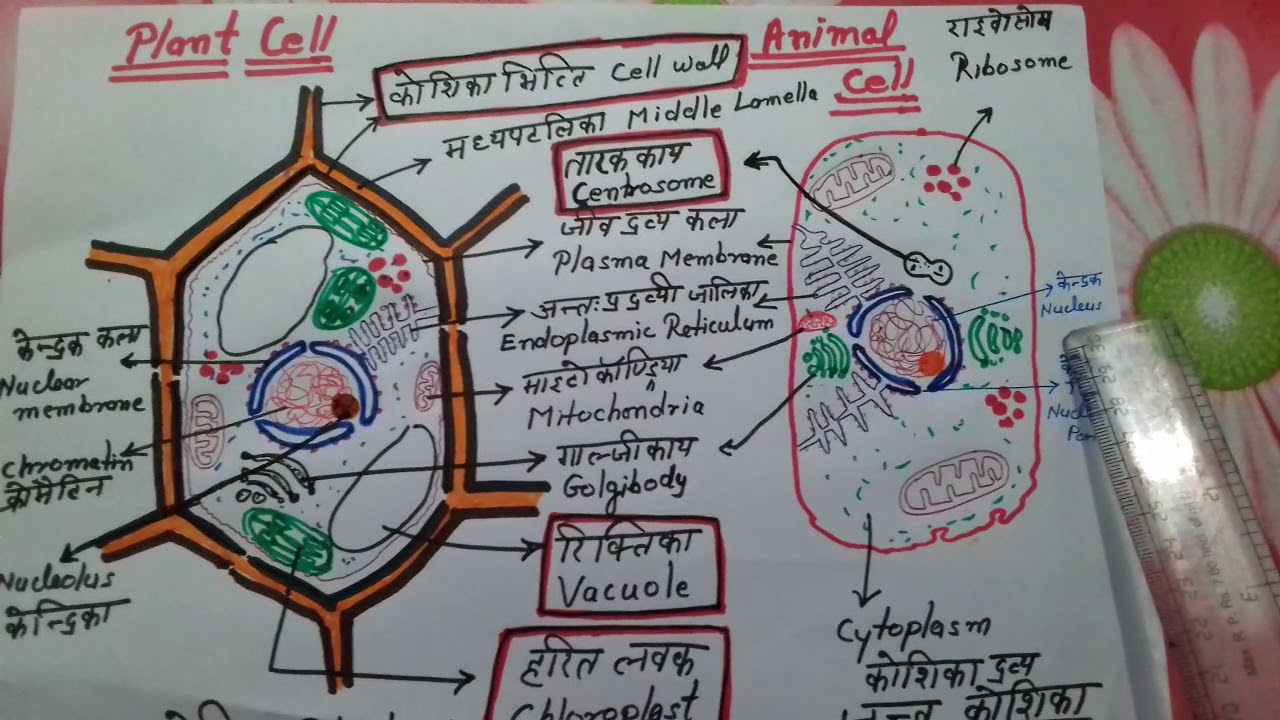 Plant Cell
Animal
Cell
राइबोसोम
Ribosome
कोशिका भित्ति Cell wall
मध्यपटलिका Middle Lamella
तारक काय
Centrosome
जीव द्रव्य कला
Plasma Membrane
अन्तः प्रद्रव्यी जालिका
Endoplasmic Reticulum
माइटोकॉण्ड्रिया
Mitochondria
गाल्जीकाय
Golgibody
रिक्तिका
Vacuole
हरित लवक
Chloroplast
केन्द्रक कला
Nuclear
membrane
chromatin
क्रोमैटिन
Nucleolus
केन्द्रिका
केन्द्रक
Nucleus
Cytoplasm
कोशिका द्रव्य
कोशिका